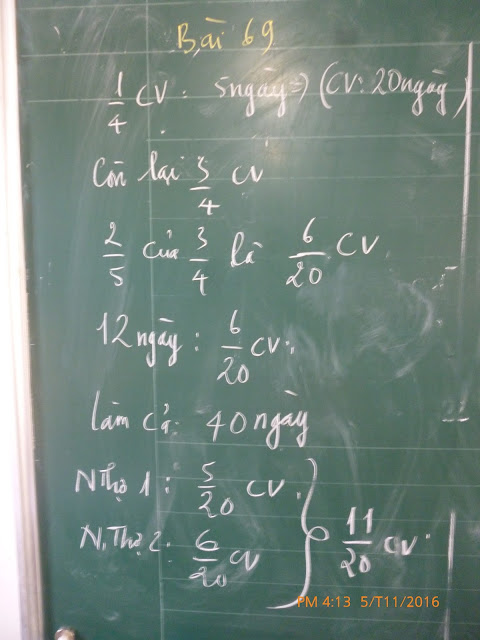 Bài 69
1/4 CV: 5ngày => (CV: 20ngày)
Còn lại 3/4 CV
2/5 của 3/4 là 6/20 CV
12 ngày: 6/20 CV.
làm cả: 40 ngày
N Thợ 1: 5/20 CV.
N. Thợ 2: 6/20 CV
11/20 CV.
PM 4:13 5/T11/2016